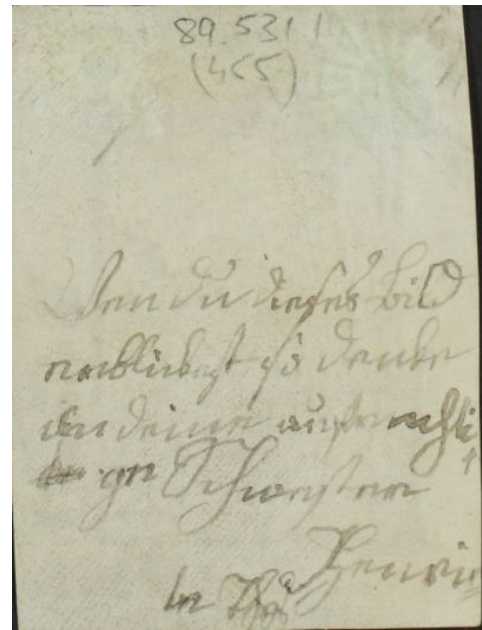 89.531
(455)
Wen du dieses Bild
eerblickest so denke
an deine aufrechti
ge Schwester
Henri